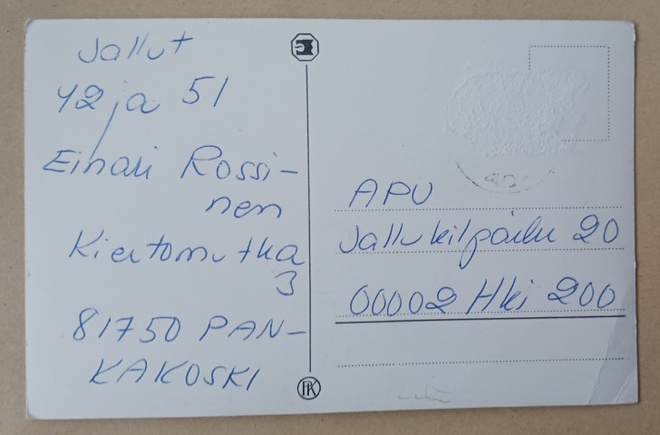 Jallut
42 ja 51
Einari Rossi-
nen
Kiertomutka
3
81750 PAN-
KAKOSKI
APU
Jallukilpailu 20
00002 Hki 200
PK